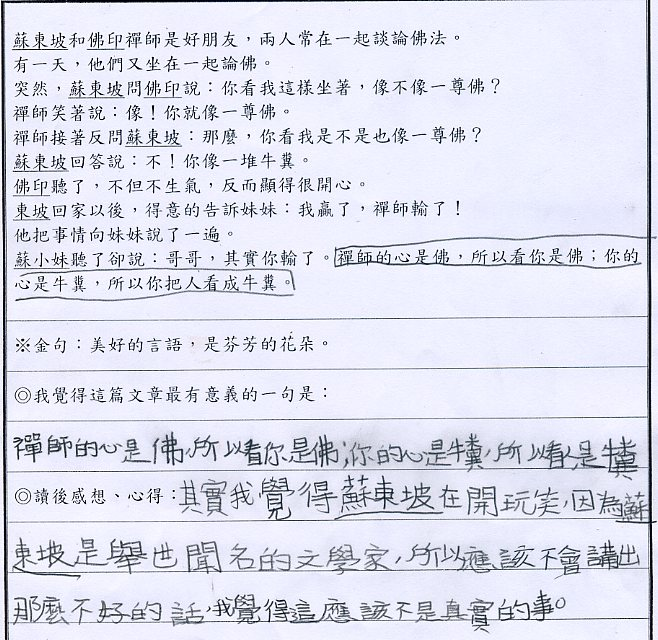 蘇東坡和佛印禪師是好朋友，兩人常在一起談論佛法。
有一天，他們又坐在一起論佛。
突然，蘇東坡問佛印說：你看我這樣坐著，像不像一尊佛？
禪師笑著說：像！你就像一尊佛。
禪師接著反問蘇東坡：那麼，你看我是不是也像一尊佛？
蘇東坡回答說：不！你像一堆牛糞。
佛印聽了，不但不生氣，反而顯得很開心。
東坡回家以後，得意的告訴妹妹：我贏了，禪師輸了！
他把事情向妹妹說了一遍。
蘇小妹聽了卻說：哥哥，其實你輸了。禪師的心是佛，所以看你是佛；你的
心是牛糞，所以你把人看成牛糞。
※金句：美好的言語，是芬芳的花朵。
◎我覺得這篇文章最有意義的一句是：
禪師的心是佛，所以看你是佛；你的心是牛糞，所以看人是牛糞
◎讀後感想、心得：其實我覺得蘇東坡在開玩笑，因為蘇
東坡是舉世聞名的文學家，所以應該不會講出
那麼不好的話，我覺得這應該不是真實的事。